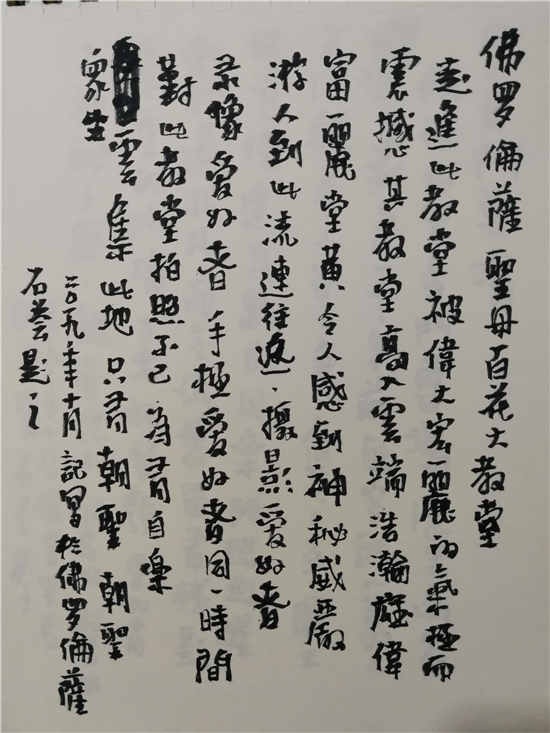 佛罗倫薩聖母百花大教堂
走進此教堂被偉大宏麗的氣極而
震撼其教堂高入雲端浩瀚巍偉
富麗堂黄令人感到神秘威嚴
游人到此流連往返.攝影愛好者
录像愛好者手極愛好者同一時間
對此教堂拍照不已.为者自樂
雲集此地只有朝聖朝聖
衆生
二〇一九年十月記寫於佛罗倫薩
石芸題之